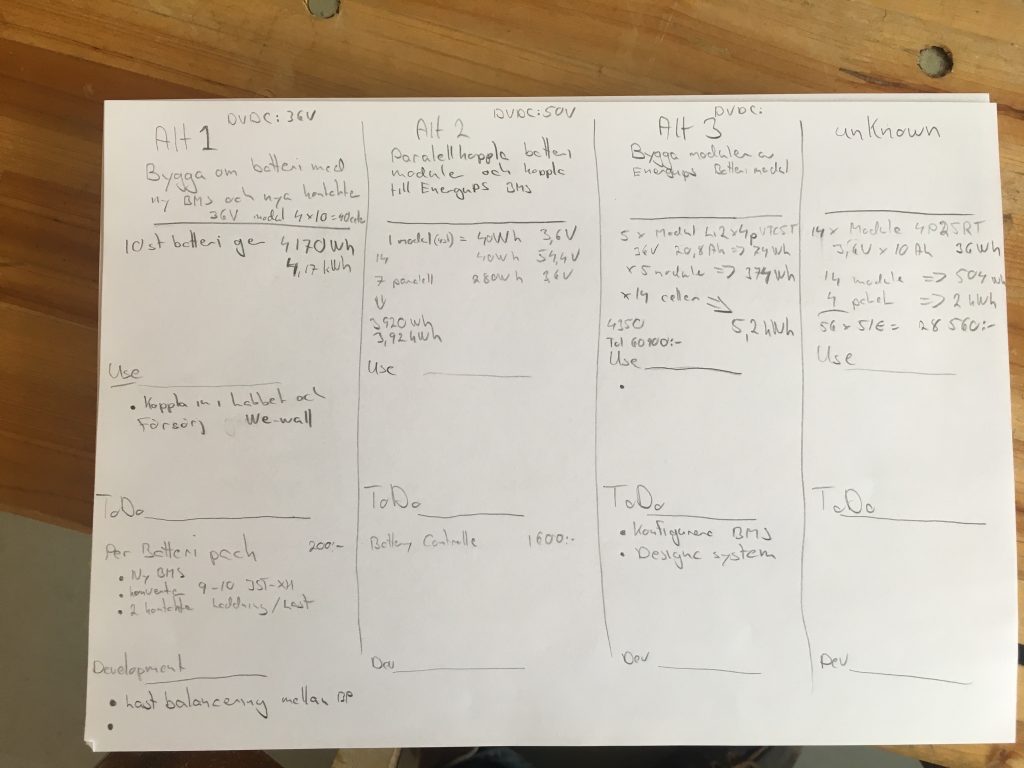 Alt 1
DVDC: 36V
Bygga om batteri med
Ny BMS och nya kontakte
36V model 4x10=40
10st batteri ger 4170 Wh
4,17 kWh
Use
• Koppla in i Labbet och
Försörj We-wall
ToDo
Per Batteri pack 200:-
• Ny BMS
9-10 JST-XH
• 2 kontakte Laddning/Last
Development
• Last balancering mellan BP
•
Alt 2
DVDC: 50V
Paralell koppla batteri
moduler och koppla
till Energups BMS
1 model = 40Wh 3,6V
14 40Wh 54,4V
7 paralell 280Wh 36V
3,920 Wh
3,92 kWh
Use
ToDo
Battery Controlle 1600:-
Dev
Alt 3
DVDC:
Bygga modulen av
Energups Batteri model
5 x Modul
36V 20,8 Ah => 74Wh
x 5 module => 374Wh
x 14 cellen
5,2 kWh
4350
Tot 60900:-
Use
•
ToDo
• Konfigurera BMS
• Designe system
Dev
unKnown
14x Module 4P25RT
3,6V x 10 Ah 36Wh
14 module => 504 Wh
4 paket => 2 kWh
56 x 51€ = 28 560:-
Use
ToDo
Dev